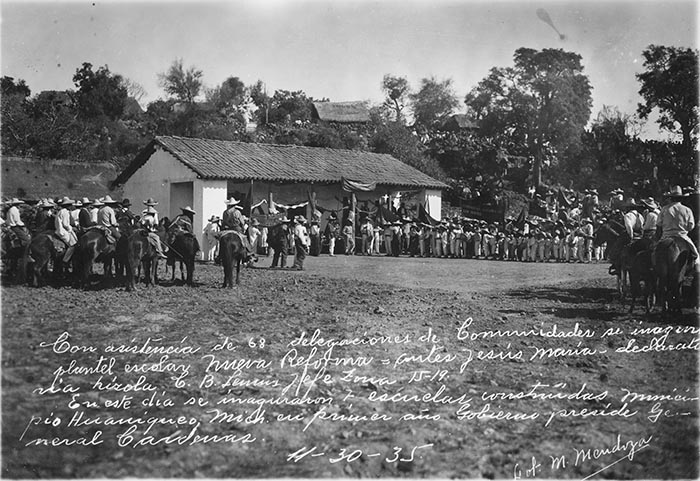 Con asistencia de 68 delegaciones de Comunidades se inaguro
plantel escolar Nueva Reforma = antes Jesús María - declarato
ria hízola C. B. Lemus Jefe Zona 15-19.
En este día se inaguraron 7 escuelas construídas, Munici-
pio Huaniqueo, Mich. en primer año Gobierno preside Ge-
neral Cardenas.
11-30-35.
Fot M. Mendoza